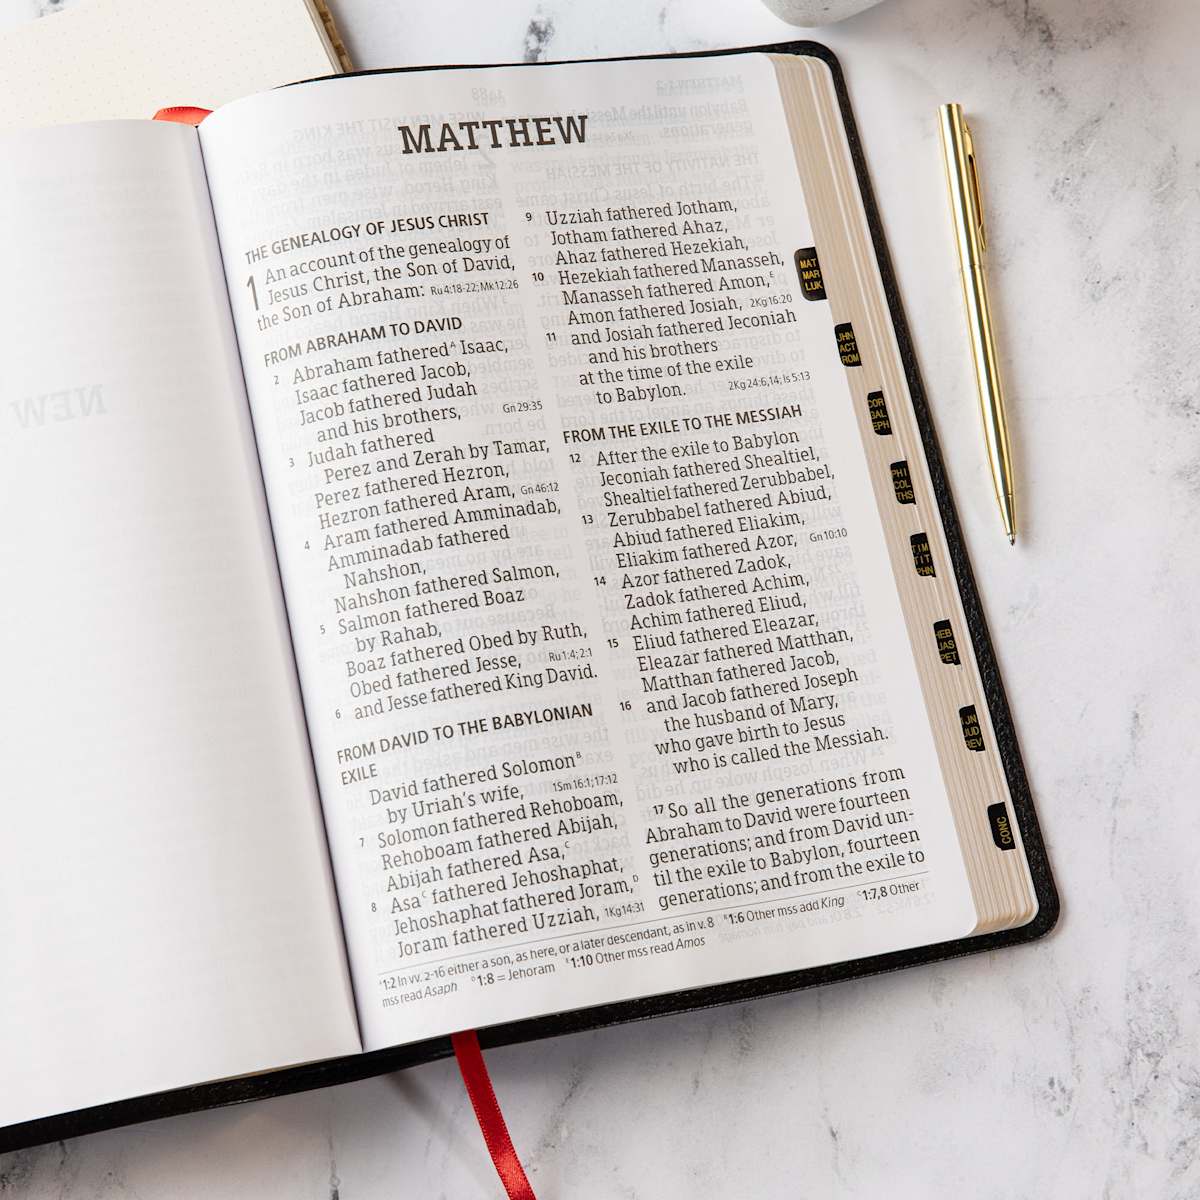 MATTHEW
THE GENEALOGY OF JESUS CHRIST
1 An account of the genealogy of
Jesus Christ, the Son of David,
the Son of Abraham: Ru 4:18-22; Mk 12:26
FROM ABRAHAM TO DAVID
2 Abraham fathered^A Isaac,
Isaac fathered Jacob,
Jacob fathered Judah
and his brothers, Gn 29:35
3 Judah fathered
Perez and Zerah by Tamar,
Perez fathered Hezron,
Hezron fathered Aram, Gn 46:12
4 Aram fathered Amminadab,
Amminadab fathered
Nahshon,
Nahshon fathered Salmon,
5 Salmon fathered Boaz
by Rahab,
Boaz fathered Obed by Ruth,
Obed fathered Jesse, Ru 1:4; 2:1
6 and Jesse fathered King David.
FROM DAVID TO THE BABYLONIAN
EXILE
David fathered Solomon^B
by Uriah's wife, 1Sm 16:1; 17:12
7 Solomon fathered Rehoboam,
Rehoboam fathered Abijah,
Abijah fathered Asa,^C
8 Asa^C fathered Jehoshaphat,
Jehoshaphat fathered Joram,^D
Joram fathered Uzziah, 1Kg 14:31
9 Uzziah fathered Jotham,
Jotham fathered Ahaz,
Ahaz fathered Hezekiah,
10 Hezekiah fathered Manasseh,
Manasseh fathered Amon,^E
Amon fathered Josiah, 2Kg 16:20
11 and Josiah fathered Jeconiah
and his brothers
at the time of the exile
to Babylon. 2Kg 24:6,14; Is 5:13
FROM THE EXILE TO THE MESSIAH
12 After the exile to Babylon
Jeconiah fathered Shealtiel,
Shealtiel fathered Zerubbabel,
13 Zerubbabel fathered Abiud,
Abiud fathered Eliakim,
Eliakim fathered Azor, Gn 10:10
14 Azor fathered Zadok,
Zadok fathered Achim,
Achim fathered Eliud,
15 Eliud fathered Eleazar,
Eleazar fathered Matthan,
Matthan fathered Jacob,
16 and Jacob fathered Joseph
the husband of Mary,
who gave birth to Jesus
who is called the Messiah.
17 So all the generations from
Abraham to David were fourteen
generations; and from David un-
til the exile to Babylon, fourteen
generations; and from the exile to
^A 1:2 In vv. 2-16 either a son, as here, or a later descendant, as in v. 8 ^B 1:6 Other mss add King ^C 1:7,8 Other
mss read Asaph ^D 1:8 = Jehoram ^E 1:10 Other mss read Amos
MAT
MAR
LUK
JHN
ACT
ROM
COR
GAL
EPH
PHI
COL
THS
TIM
TIT
PHN
HEB
JAS
PET
JJN
JUD
REV
CONC